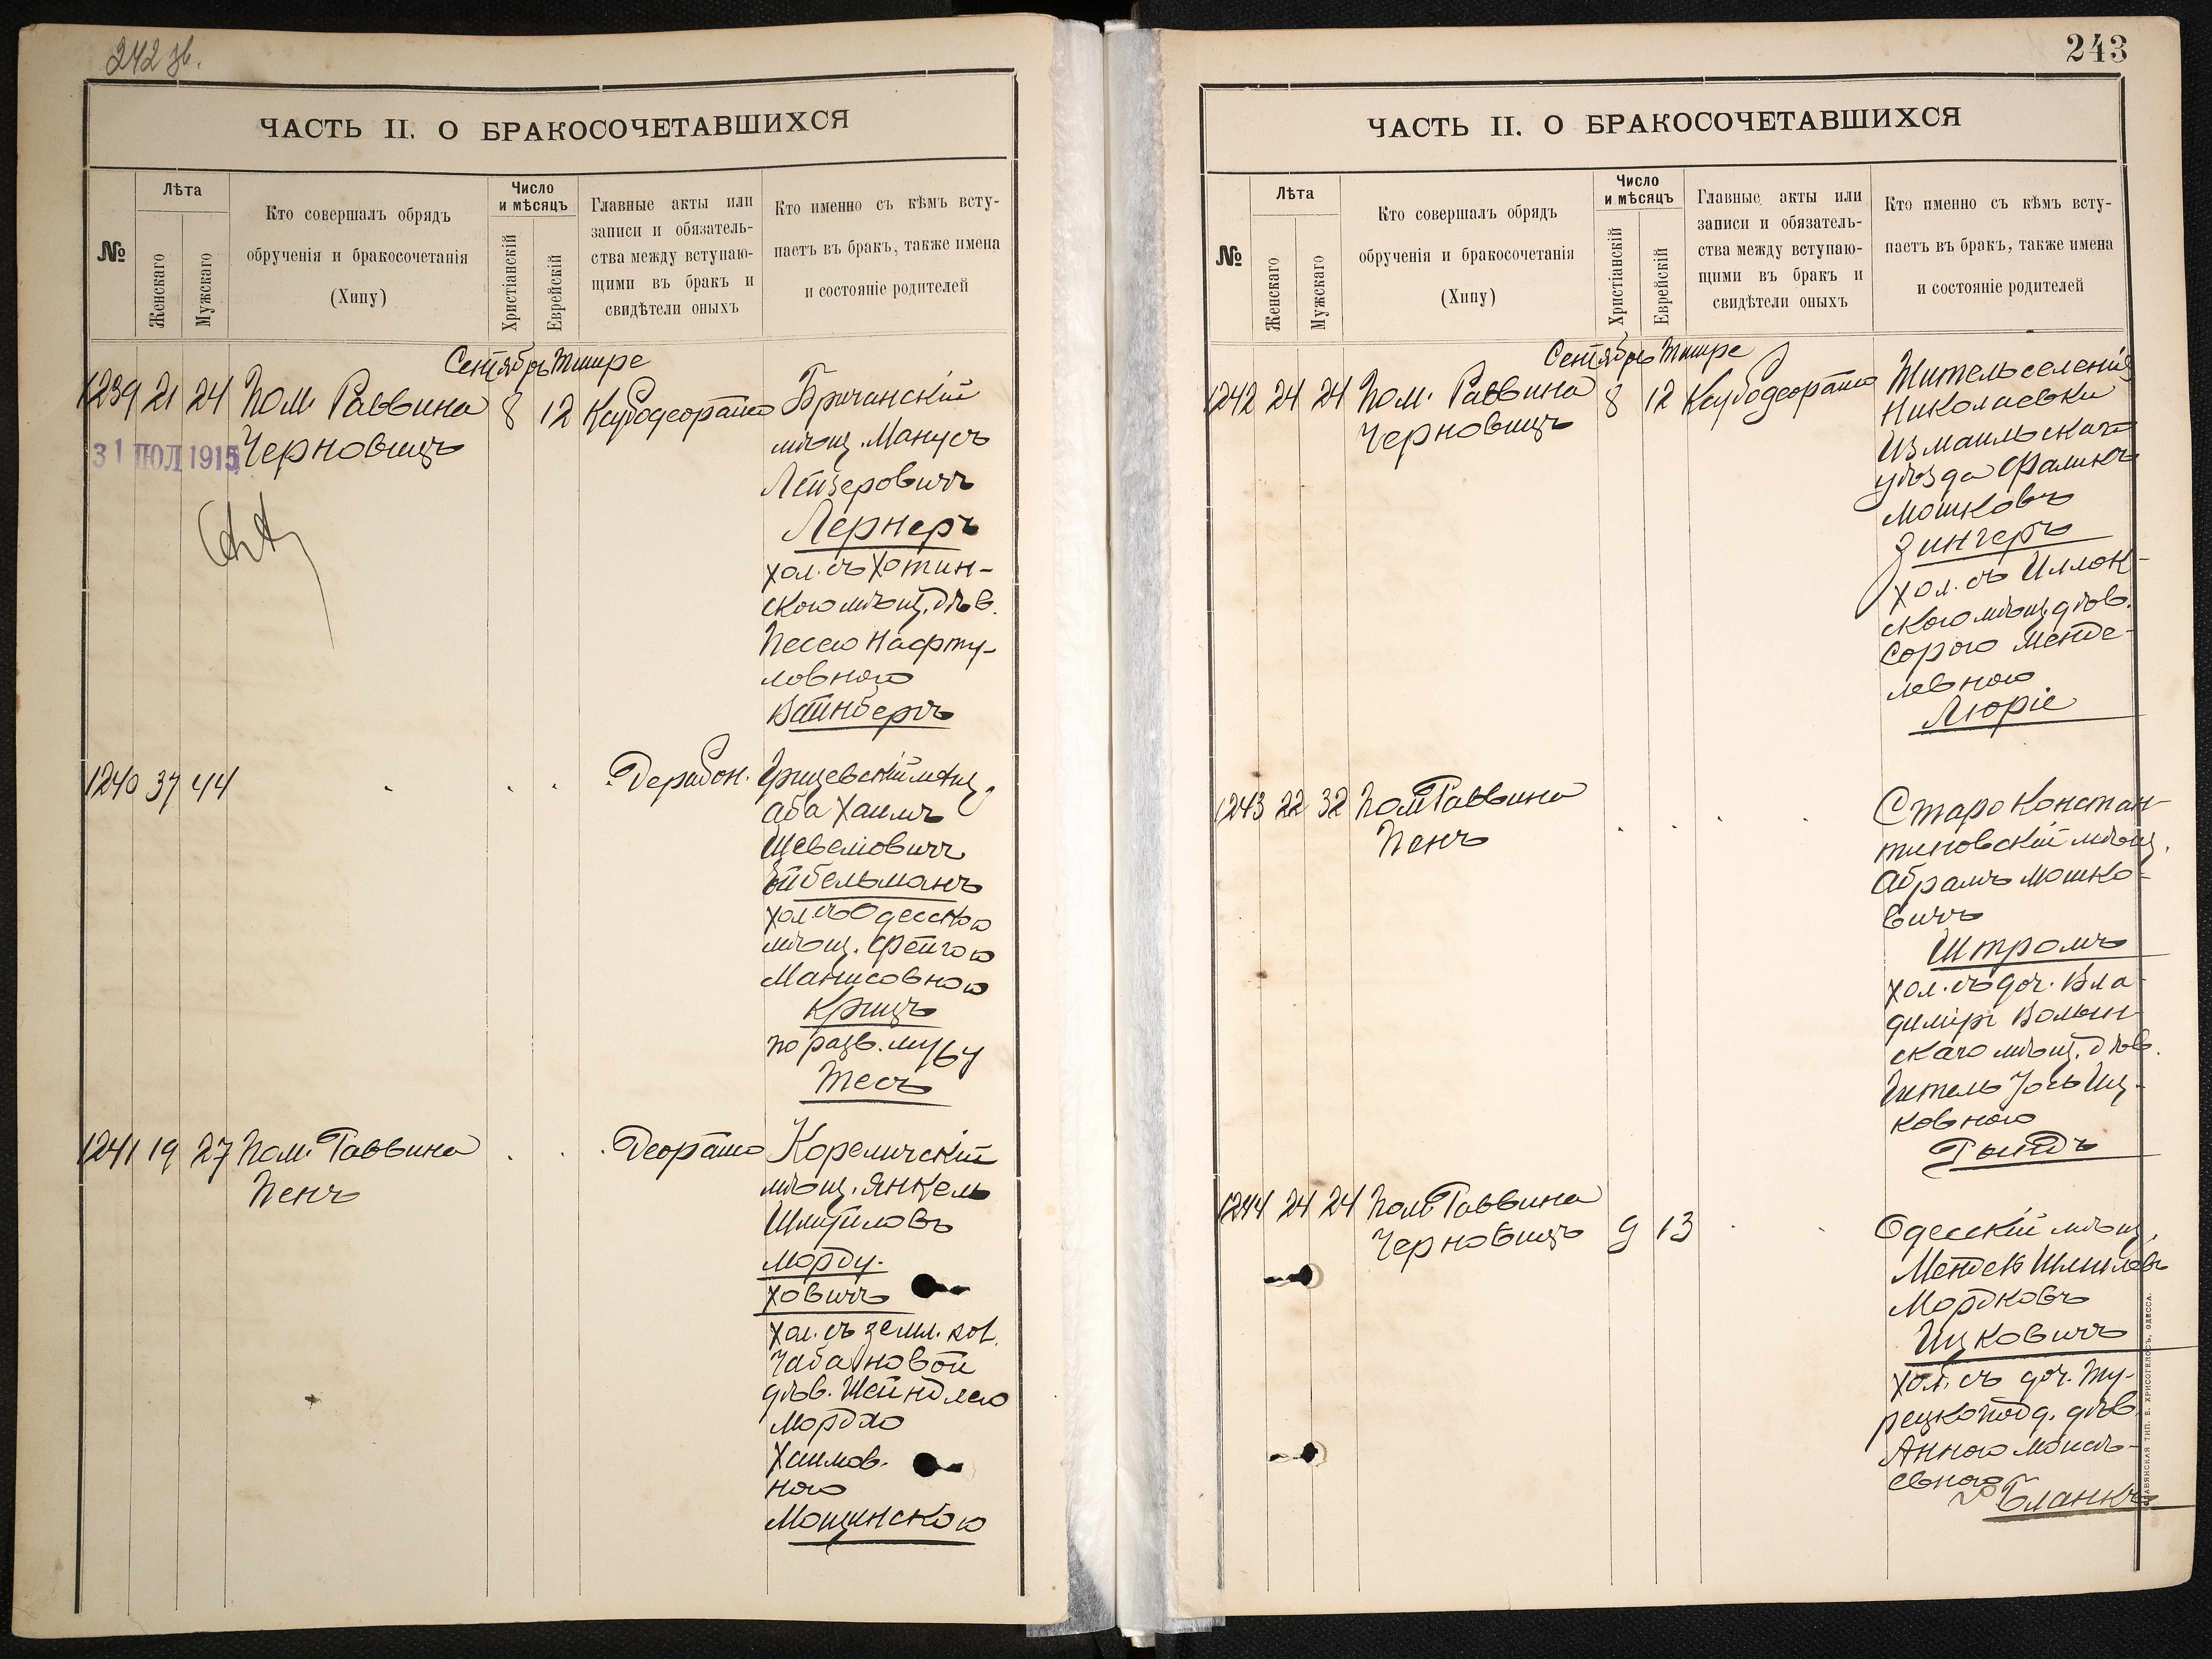 242 об.
ЧАСТЬ II. О БРАКОСОЧЕТАВШИХСЯ
№
Лѣта
Женскаго
Мужскаго
Кто совершалъ обрядъ
обрученія и бракосочетанія
(Хипу)
Число
и мѣсяцъ
Христіанскій
Еврейскій
Главные акты или
записи и обязатель-
ства между вступаю-
щими въ бракъ и
свидѣтели оныхъ
Кто именно съ кѣмъ всту-
паетъ въ бракъ, также имена
и состояніе родителей
Сентябрь Тишре
1239 21 24 Пом. Раввина 8 12
Черновицъ
31 ІЮЛ 1915
Бричанскій
мѣщ. Манусъ
Лейзеровичъ
Лернеръ
хол. съ Хотин-
скою мѣщ. дѣв.
Песею Нафту-
ловною
Вайнбергъ
1240 37 44
Грицевскій мѣщ.
Аба Хаимъ
Эйбельманъ
хол. съ Одесскою
мѣщ. Фейгою
Манисовною
Крицъ
по разв. мужу
Тесъ
1241 19 27 Пом. Раввина
Пенъ
Кореличскій
мѣщ. Янкель
Шмуиловъ
Морду-
ховичъ
хол. съ земл. кол.
дѣв. Шейндлею
Хаимов-
ною
Мощинскою
243
ЧАСТЬ II. О БРАКОСОЧЕТАВШИХСЯ
№
Лѣта
Женскаго
Мужскаго
Кто совершалъ обрядъ
обрученія и бракосочетанія
(Хипу)
Число
и мѣсяцъ
Христіанскій
Еврейскій
Главные акты или
записи и обязатель-
ства между вступаю-
щими въ бракъ и
свидѣтели оныхъ
Кто именно съ кѣмъ всту-
паетъ въ бракъ, также имена
и состояніе родителей
Сентябрь Тишре
1242 24 24 Пом. Раввина 8 12
Черновицъ
Житель селенія
Николаевки
Измаильскаго
уѣзда Фаликъ
Мошковъ
Зингеръ
хол. съ Иллок-
скою мѣщ. дѣв.
Сорою Менде-
левною
Люріе
1243 22 32 Пом. Раввина
Пенъ
Старо Констан-
тиновскій мѣщ.
Абрамъ Мошко-
вичъ
Штромъ
хол. съ доч. Вла-
диміръ Волын-
скаго мѣщ. дѣв.
Гитель Иц-
ковною
1244 24 24 Пом. Раввина
Черновицъ 9 13
Одесскій мѣщ.
Мордковъ
Ицковичъ
хол. съ доч. Ту-
рецкопод. дѣв.
Анною Моисе-
евною
Бланкъ
СЛАВЯНСКАЯ ТИП. Е. ХРИСОГЕЛОСЪ, ОДЕССА.